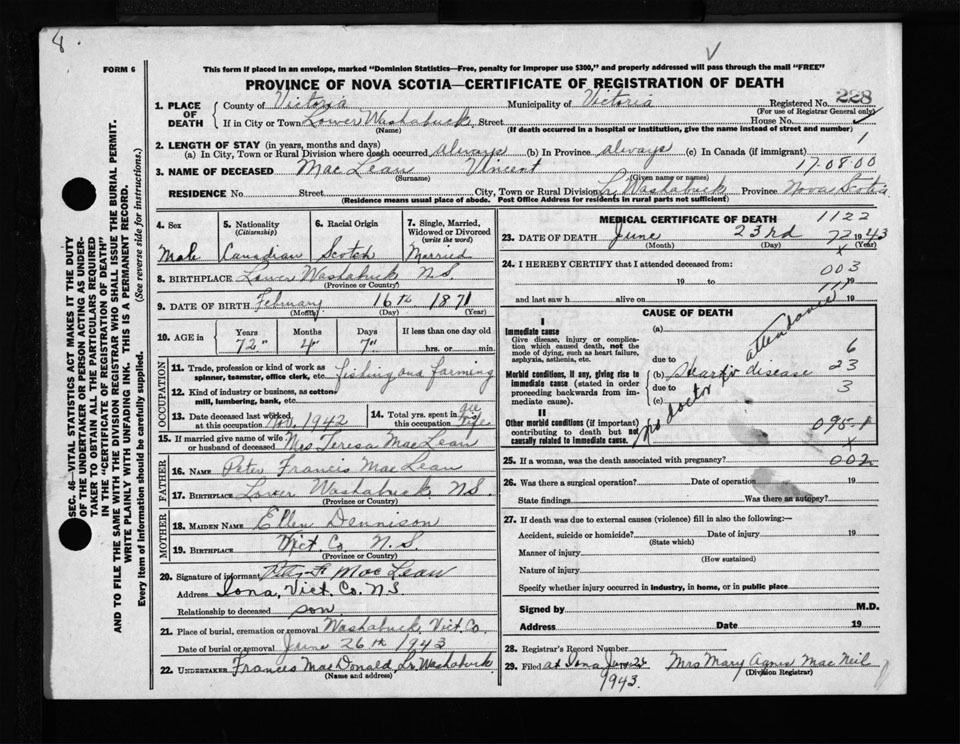 8.
FORM 6
This form if placed in an envelope, marked "Dominion Statistics—Free, penalty for improper use $300," and properly addressed will pass through the mail "FREE"
PROVINCE OF NOVA SCOTIA—CERTIFICATE OF REGISTRATION OF DEATH
SEC. 46—VITAL STATISTICS ACT MAKES IT THE DUTY
OF THE UNDERTAKER OR PERSON ACTING AS UNDER-
TAKER TO OBTAIN ALL THE PARTICULARS REQUIRED
IN THE "CERTIFICATE OF REGISTRATION OF DEATH"
AND TO FILE THE SAME WITH THE DIVISION REGISTRAR WHO SHALL ISSUE THE BURIAL PERMIT.
WRITE PLAINLY WITH UNFADING INK. THIS IS A PERMANENT RECORD.
Every item of Information should be carefully supplied. (See reverse side for instructions.)
1. PLACE OF DEATH
County of Victoria Municipality of Victoria Registered No. 228
(For use of Registrar General only)
If in City or Town Lower Washabuck, Street House No.
(Name) (If death occurred in a hospital or institution, give the name instead of street and number)
2. LENGTH OF STAY (in years, months and days) 1
(a) In City, Town or Rural Division where death occurred always (b) In Province always (c) In Canada (if immigrant)
3. NAME OF DECEASED MacLean Vincent 17.08.00
(Surname) (Given name or names)
RESIDENCE No Street City, Town or Rural Division Lr Washabuck Province Nova Scotia
(Residence means usual place of abode. Post Office Address for residents in rural parts not sufficient)
4. Sex
Male
5. Nationality
(Citizenship)
Canadian
6. Racial Origin
Scotch
7. Single, Married,
Widowed or Divorced
(write the word)
Married
8. BIRTHPLACE Lower Washabuck N.S.
(Province or Country)
9. DATE OF BIRTH February 16th 1871
(Month) (Day) (Year)
10. AGE in
Years 72"
Months 4"
Days 7"
If less than one day old
hrs. or min.
OCCUPATION
11. Trade, profession or kind of work as
spinner, teamster, office clerk, etc. fishing and farming
12. Kind of industry or business, as cotton-
mill, lumbering, bank, etc.
13. Date deceased last worked
at this occupation Nov. 1942
14. Total yrs. spent in
this occupation all life
15. If married give name of wife
or husband of deceased Mrs Teresa MacLean
FATHER
16. NAME Peter Francis MacLean
17. BIRTHPLACE Lower Washabuck, N.S.
(Province or Country)
MOTHER
18. MAIDEN NAME Ellen Dennison
19. BIRTHPLACE Vict. Co. N.S.
(Province or Country)
20. Signature of informant Peter F MacLean
Address Iona, Vict. Co. N.S
Relationship to deceased son
21. Place of burial, cremation or removal Washabuck, Vict. Co.
Date of burial or removal June 26th 1943
22. UNDERTAKER Frances MacDonald, Lr. Washabuck
(Name and address)
MEDICAL CERTIFICATE OF DEATH 1122
23. DATE OF DEATH June 23rd 72 1943
(Month) (Day) (Year)
24. I HEREBY CERTIFY that I attended deceased from:
003
19 to 19
and last saw h alive on 19
CAUSE OF DEATH
I
Immediate cause
Give disease, injury or complica-
tion which caused death, not the
mode of dying, such as heart failure,
asphyxia, asthenia, etc.
Morbid conditions, if any, giving rise to
immediate cause (stated in order
proceeding backwards from im-
mediate cause).
II
Other morbid conditions (if important)
contributing to death but not
causally related to immediate cause.
(a)
due to 6
(b) Heart disease 23
due to 3
(c)
No doctor attendance
095-1
25. If a woman, was the death associated with pregnancy? 002
26. Was there a surgical operation? Date of operation 19
State findings Was there an autopsy?
27. If death was due to external causes (violence) fill in also the following:—
Accident, suicide or homicide? Date of injury 19
(State which)
Manner of injury
(How sustained)
Nature of injury
Specify whether injury occurred in industry, in home, or in public place
Signed by M.D.
Address Date 19
28. Registrar's Record Number
29. Filed at Iona June 25 Mrs Mary Agnes MacNeil
1943. (Division Registrar)